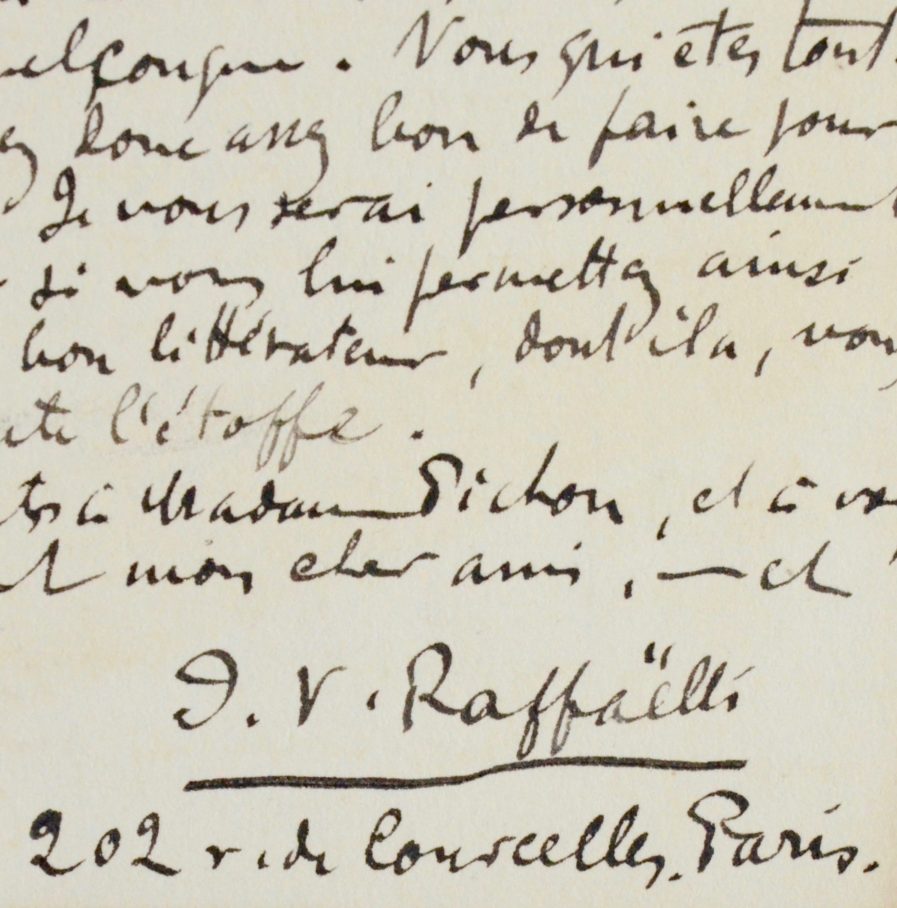 uelconque. Vous qui êtes tout
ez donc assez bon de faire pour
Je vous serai personnellement
si vous lui permettez ainsi
bon littérateur, dont il a, vous
ute l'étoffe.
ts à Madame Pichon, et à vo
mon cher ami, — et
J. V. Raffaëlli
202 r. de Courcelles. Paris.